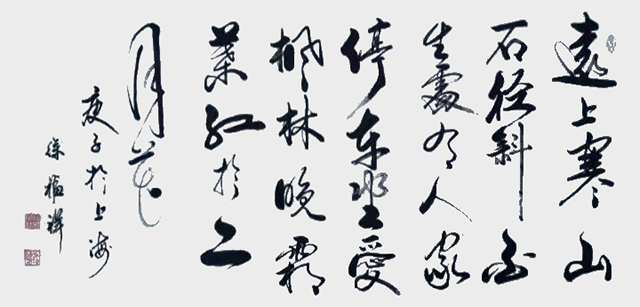 遠上寒山
石径斜白
生處有人家
停车坐愛
楓林晚霜
葉红於二
月花
庚子於上海
徐